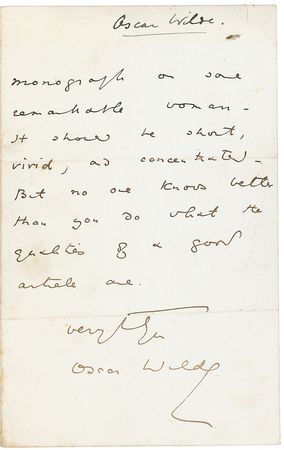 Oscar Wilde.
monograph on some
remarkable woman -
It should be short,
vivid, and concentrated -
But no one knows better
than you do what the
qualities of a good
article are.
very
Oscar Wilde